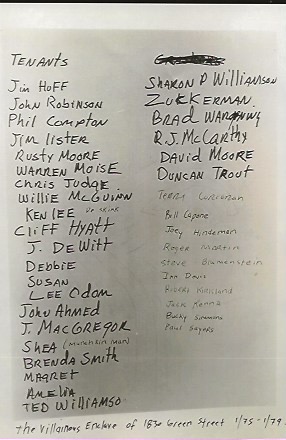 TENANTS
Jim Huff
John Robinson
Phil Compton
Jim Lister
Rusty Moore
Warren Moise
Chris Judge
Willie McGuinn
Ken Lee
Cliff Hyatt
J. DeWitt
Debbie
Susan
Lee Odom
John Ahmed
J. MacGregor
Shea (munchkin man)
Brenda Smith
Magret
Amelia
Ted Williamso
Sharon P Williamson
Zukkerman
Brad
R.J. McCarthy
David Moore
Duncan Trout
Terry Corcoran
Bill Capone
Joey Hindeman
Roger Martin
Steve Blumenstein
Jan Davis
Kirkland
Jack Kenna
Bucky Simmons
Paul Sayers
The Villainous Enclave of 1830 Green Street 1/75 - 1/79